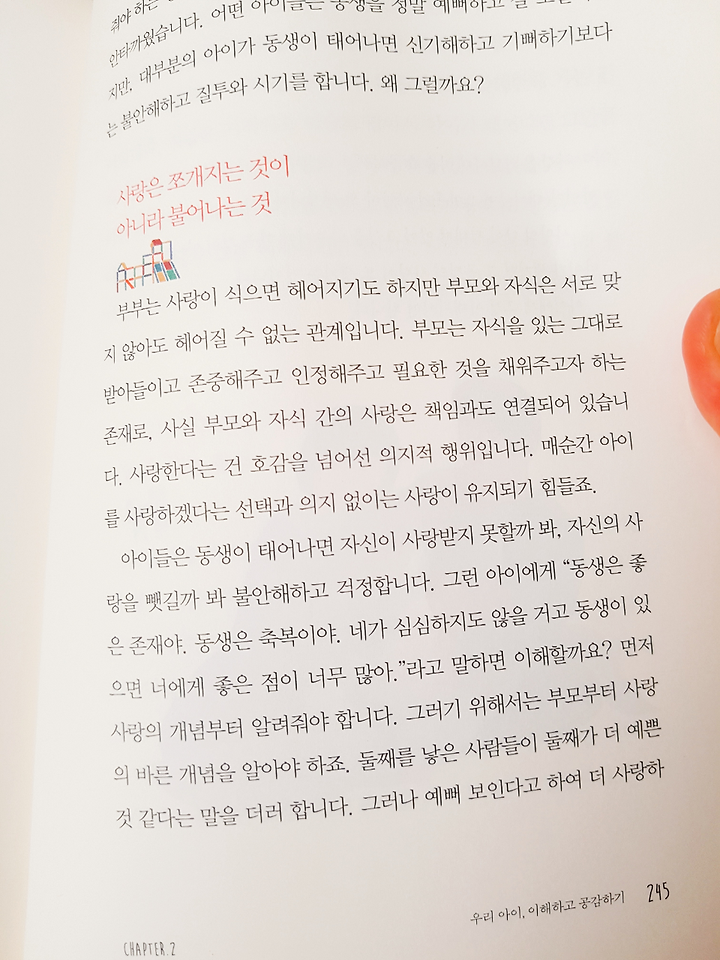 줘야 하는
안타까웠습니다. 어떤 아이들은 동생을 정말 예뻐하고 잘
지만, 대부분의 아이가 동생이 태어나면 신기해하고 기뻐하기보다
는 불안해하고 질투와 시기를 합니다. 왜 그럴까요?
사랑은 쪼개지는 것이
아니라 불어나는 것
부부는 사랑이 식으면 헤어지기도 하지만 부모와 자식은 서로 맞
지 않아도 헤어질 수 없는 관계입니다. 부모는 자식을 있는 그대로
받아들이고 존중해주고 인정해주고 필요한 것을 채워주고자 하는
존재로, 사실 부모와 자식 간의 사랑은 책임과도 연결되어 있습니
다. 사랑한다는 건 호감을 넘어선 의지적 행위입니다. 매순간 아이
를 사랑하겠다는 선택과 의지 없이는 사랑이 유지되기 힘들죠.
아이들은 동생이 태어나면 자신이 사랑받지 못할까 봐, 자신의 사
랑을 뺏길까 봐 불안해하고 걱정합니다. 그런 아이에게 “동생은 좋
은 존재야. 동생은 축복이야. 네가 심심하지도 않을 거고 동생이 있
으면 너에게 좋은 점이 너무 많아.”라고 말하면 이해할까요? 먼저
사랑의 개념부터 알려줘야 합니다. 그러기 위해서는 부모부터 사랑
의 바른 개념을 알아야 하죠. 둘째를 낳은 사람들이 둘째가 더 예쁜
것 같다는 말을 더러 합니다. 그러나 예뻐 보인다고 하여 더 사랑하
우리 아이, 이해하고 공감하기 245
CHAPTER.2